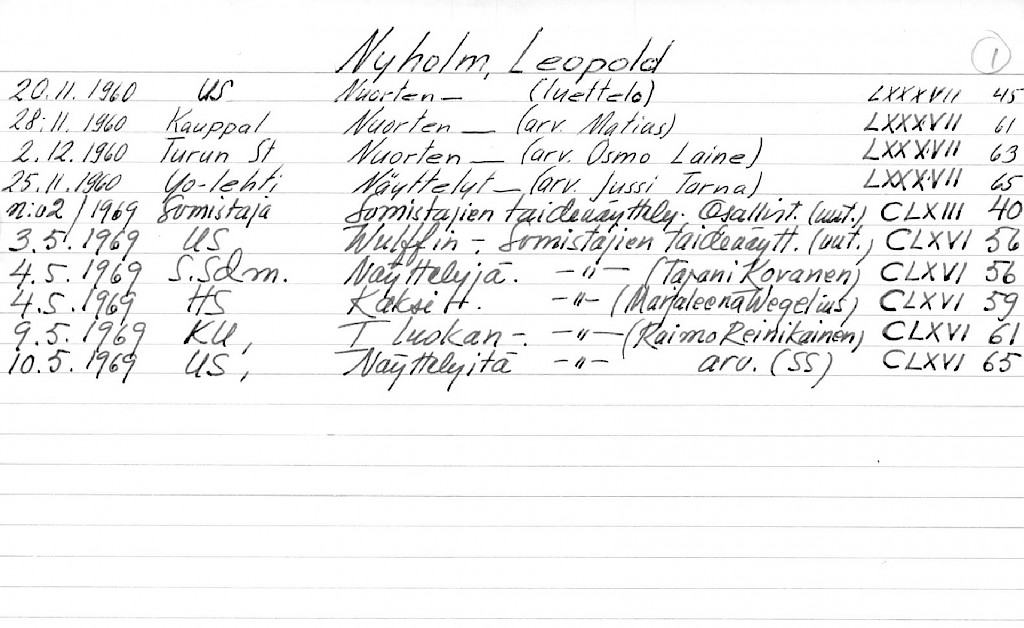 Nyholm, Leopold 1
20.11.1960 US Nuorten — (luettelo) LXXXVII 45
28.11.1960 Kauppal Nuorten — (arv. Matias) LXXXVII 61
2.12.1960 Turun St, Nuorten — (arv. Osmo Laine) LXXXVII 63
25.11.1960 Yo-lehti Näyttelyt — (arv. Jussi Tarna) LXXXVII 65
n:o2/1969 Somistaja Somistajien taidenäyttely. Osallist. (uut.) CLXIII 40
3.5.1969 US Wulff'in -. Somistajien taidenäytt. (uut.) CLXVI 56
4.5.1969 S.Sdm. Näyttelyjä. —"— (Tapani Kovanen) CLXVI 56
4.5.1969 HS Kaksi t. —"— (Marjaleena Wegelius) CLXVI 59
9.5.1969 KU, I luokan -. —"— (Raimo Reinikainen) CLXVI 61
10.5.1969 US, Näyttelyitä —"— arv. (SS) CLXVI 65